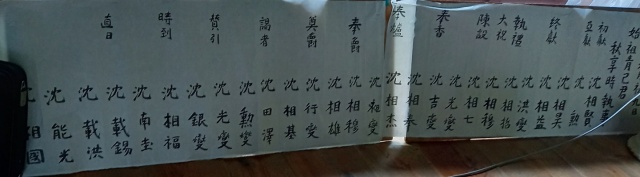 始祖青己君
秋享時執事
初獻 沈相賢
亞獻 沈 勲
終獻 沈相昊
沈相益
執禮 沈洪燮
大祝 沈相
陳設 沈相穆
沈相七
沈光燮
奉香 沈吉燮
沈相泰
奉爐 沈相杰
沈相燮
奉爵 沈相穆
沈相雄
奠爵 沈行燮
沈相基
謁者 沈田澤
沈勳燮
贊引 沈光燮
沈銀燮
時到 沈相福
沈南圭
直日 沈載錫
沈載洪
沈能光
沈相國